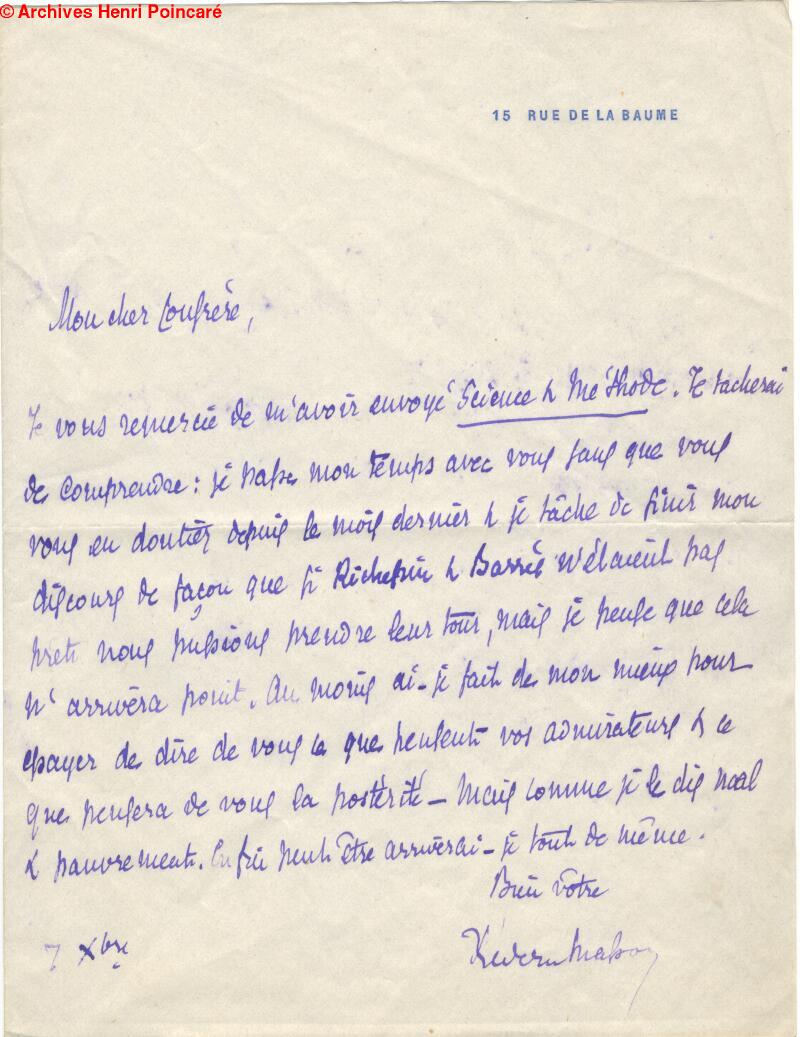 © Archives Henri Poincaré
15 RUE DE LA BAUME
Mon cher Confrère,
Je vous remercie de m'avoir envoyé Science & Méthode. Je tacherai
de comprendre : je passe mon temps avec vous sans que vous
vous en doutiez depuis le mois dernier & je tâche de finir mon
discours de façon que si Richepin & Barrès n'étaient pas
prets nous puissions prendre leur tour, mais je pense que cela
n'arrivera point. Au moins ai-je fait de mon mieux pour
essayer de dire de vous ce que pensent vos admirateurs & ce
que pensera de vous la postérité — Mais comme je le dis mal
& pauvrement. Enfin peut être arriverai-je tout de même.
Bien vôtre
7 Xbre
Masson